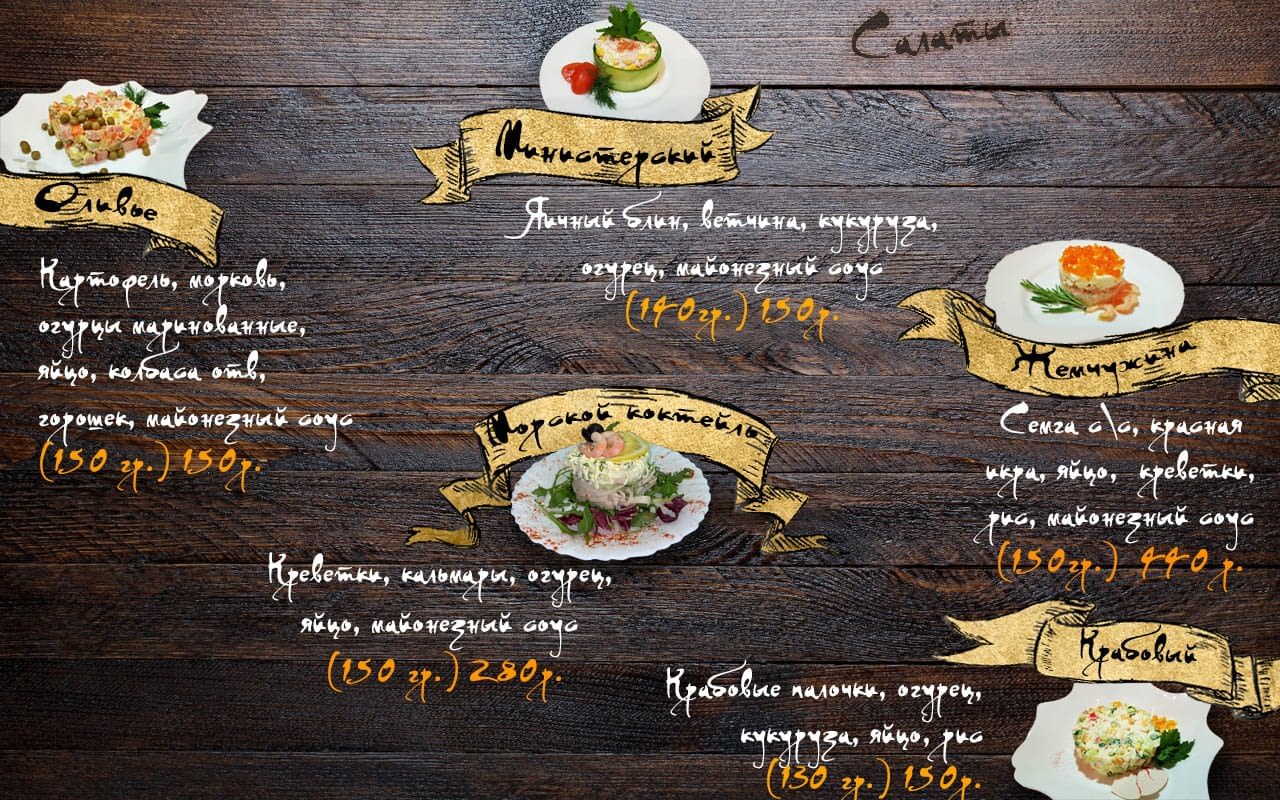 Салаты
Оливье
Картофель, морковь,
огурцы маринованные,
яйцо, колбаса отв,
горошек, майонезный соус
(150 гр.) 150р.
Министерский
Яичный блин, ветчина, кукуруза,
огурец, майонезный соус
(140гр.) 150р.
Жемчужина
Семга с\с, красная
икра, яйцо, креветки,
рис, майонезный соус
(150гр.) 440 р.
Морской коктейль
Креветки, кальмары, огурец,
яйцо, майонезный соус
(150 гр.) 280р.
Крабовый
Крабовые палочки, огурец,
кукуруза, яйцо, рис
(130 гр.) 150р.